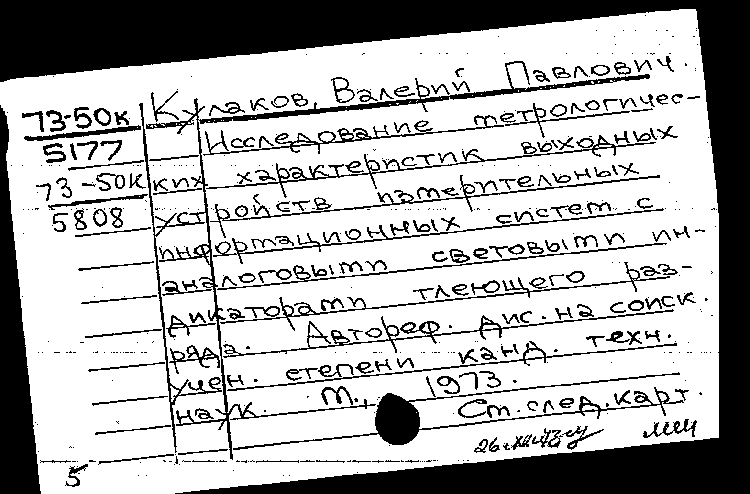 73-50к Кулаков, Валерий Павлович.
5177 Исследование метрологичес-
73-50к ких характеристик выходных
5808 устройств измерительных
информационных систем с
аналоговыми световыми ин-
дикаторами тлеющего раз-
ряда. Автореф. дис. на соиск.
учен. степени канд. техн.
наук. М., 1973.
См. след. карт.
5